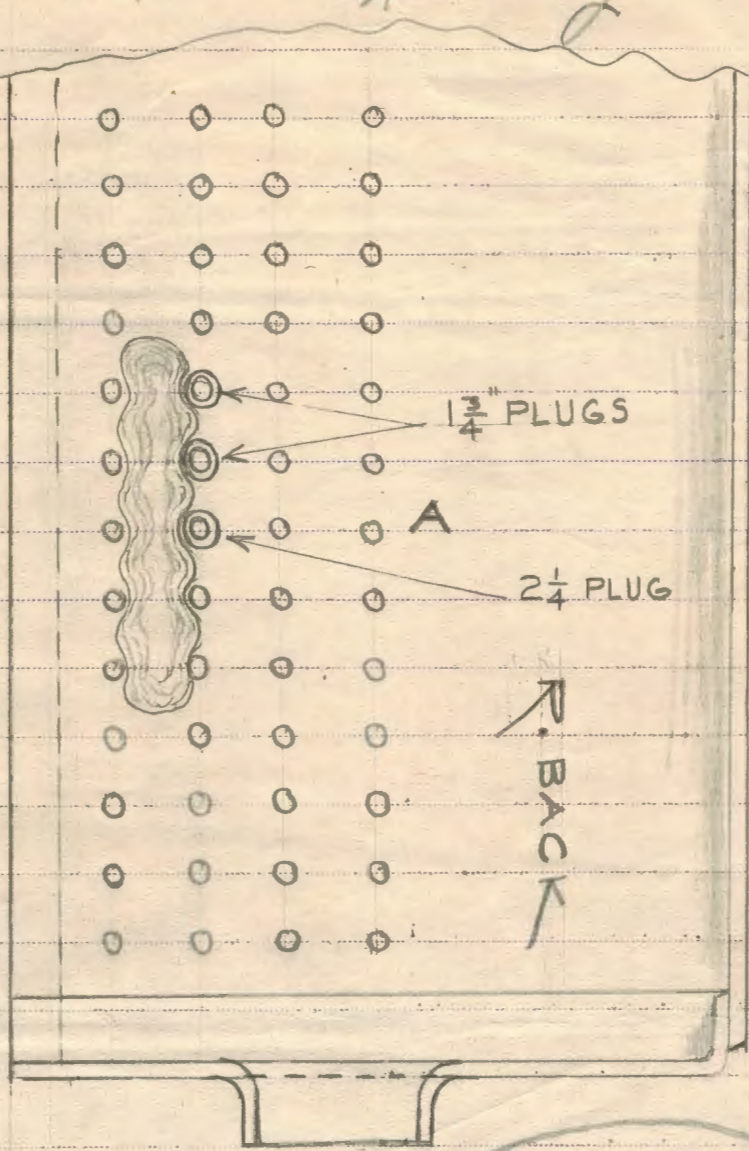 1 3/4" PLUGS
A
2 1/4 PLUG
R. BACK